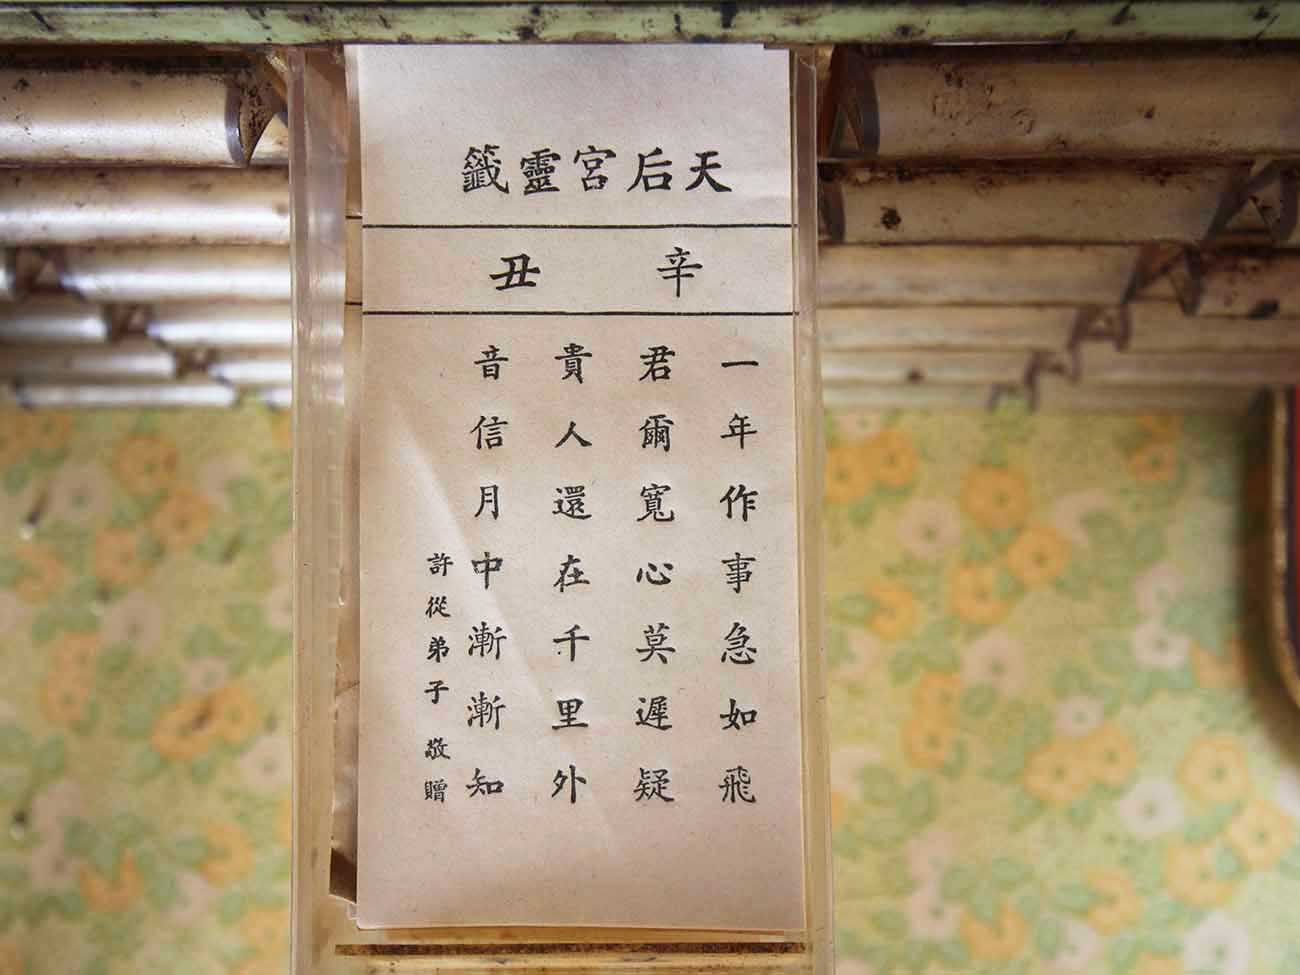 天后宮靈籤
辛丑
一年作事急如飛
君爾寬心莫遲疑
貴人還在千里外
音信月中漸漸知
許從弟子敬贈